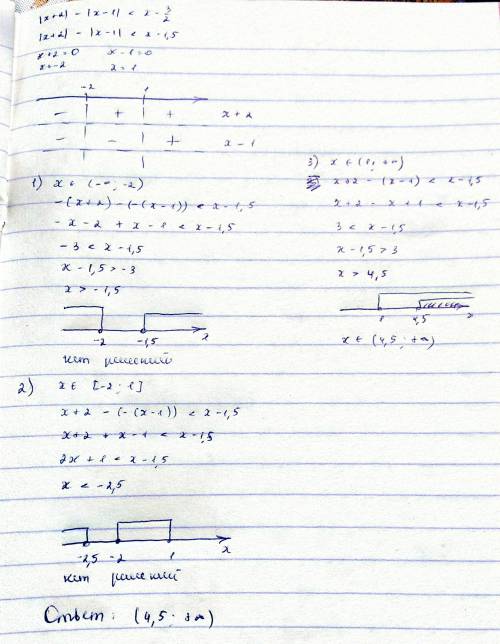 |x+2| - |x-1| < x - 3/2
|x+2| - |x-1| < x-1,5
x+2=0 x-1=0
x=-2 x=1
-2 1
- + + x+2
- - + x-1
1) x ∈ (-∞; -2)
-(x+2) - (-(x-1)) < x-1,5
-x-2 + x-1 < x-1,5
-3 < x-1,5
x-1,5 > -3
x > -1,5
-2 -1,5 x
нет решений
2) x ∈ [-2; 1]
x+2 - (-(x-1)) < x-1,5
x+2 + x-1 < x-1,5
2x+1 < x-1,5
x < -2,5
-2,5 -2 1 x
нет решений
3) x ∈ (1; +∞)
x+2 - (x-1) < x-1,5
x+2 - x+1 < x-1,5
3 < x-1,5
x-1,5 > 3
x > 4,5
1 4,5 x
x ∈ (4,5; +∞)
Ответ: (4,5; +∞)